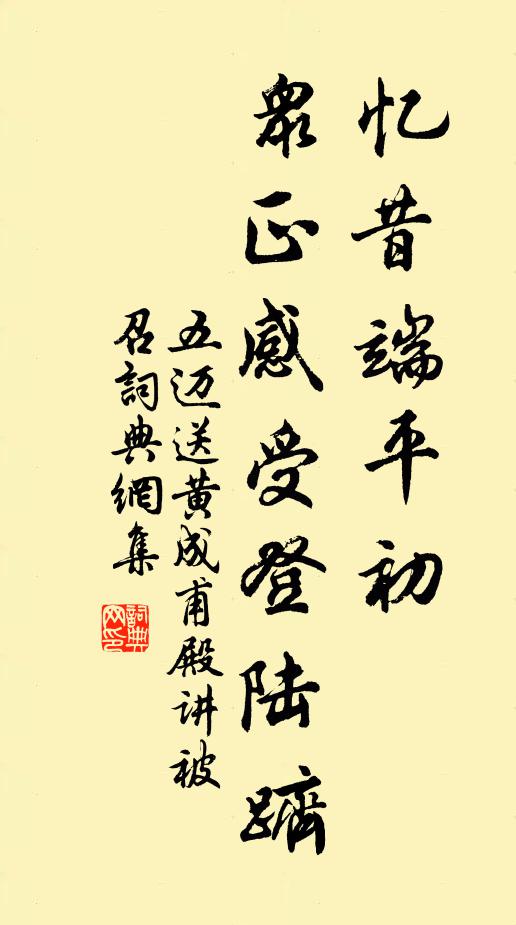 忆昔端平初
眾正感受登陆躋
五迈送黄成甫殿讲被
召詞典網集
詞典网印